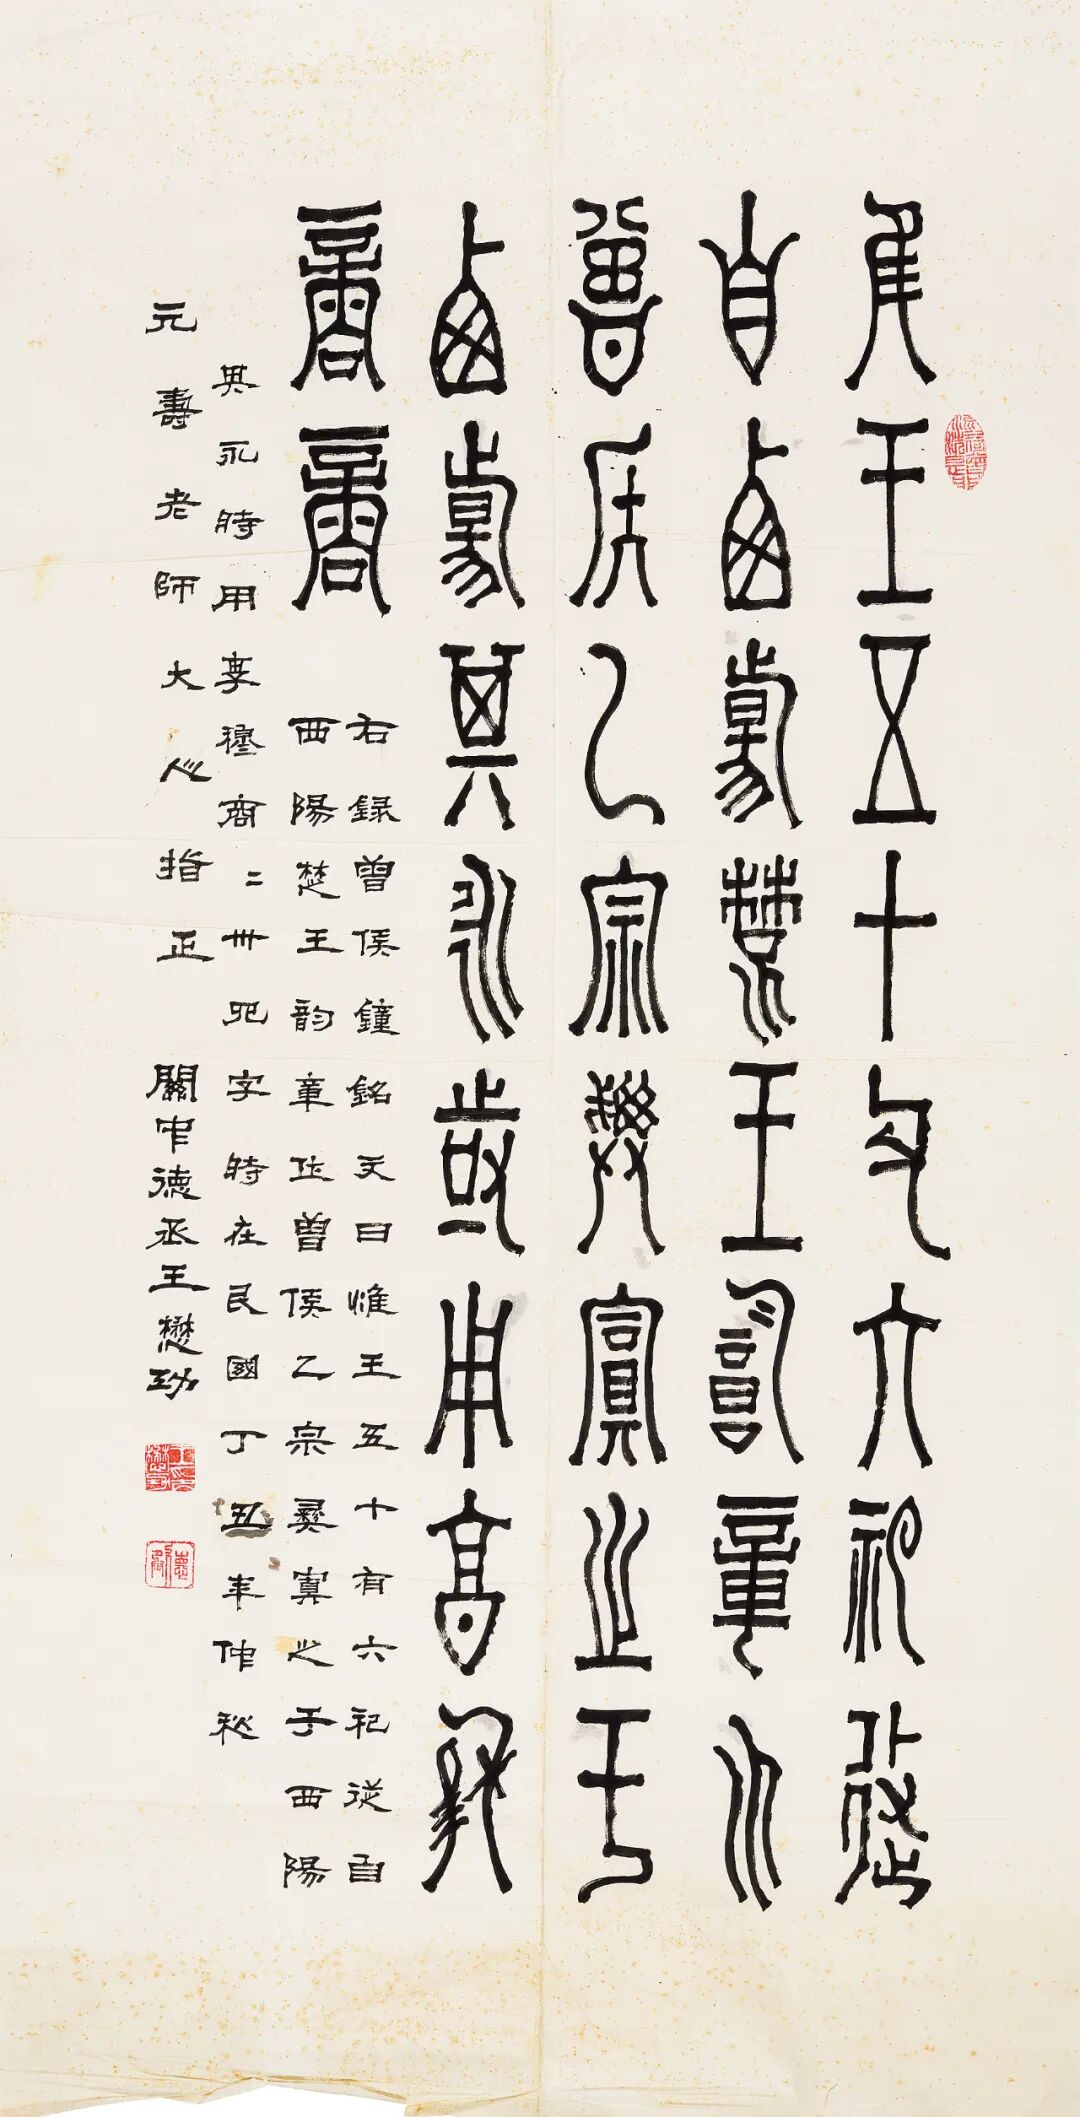 隹王五十又六祀徙
自西陽楚王韵章乍
曾侯乙宗彝寘之于
西陽其永時用享穆
商商
右録曾侯鐘銘文曰惟王五十有六祀徙自
西陽楚王韵章作曾侯乙宗彝寘之于西陽
其永時用享穆商二卅四字時在民國丁丑年仲秋
元壽老師大人指正 關中德丞王懋功